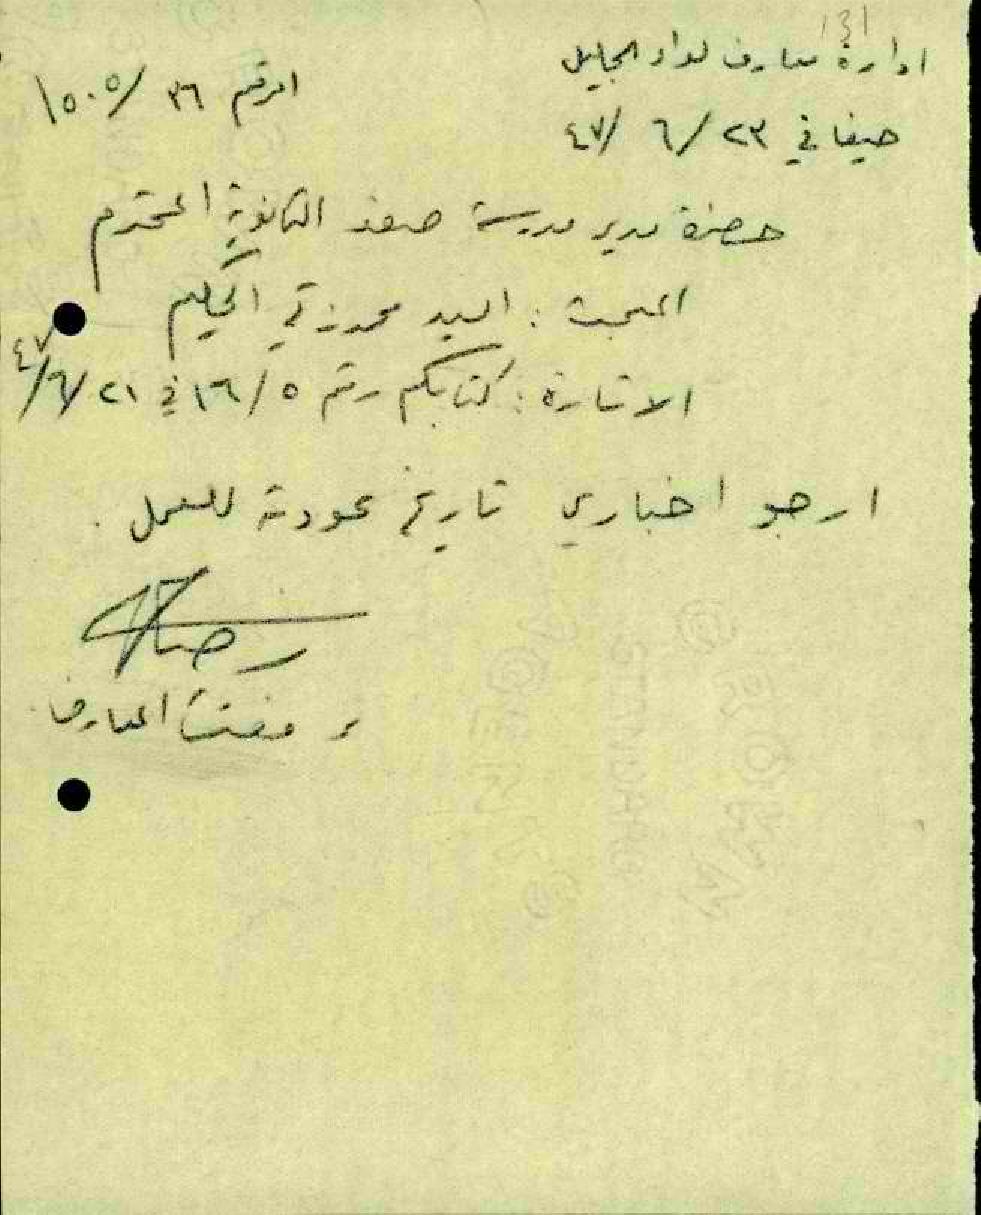 ١٤١
ادارة معارف لواء الجليل
الرقم ٣٦ / ١٥٠٥
حيفا في ٢٣ / ٦ / ٤٧
حضرة مدير مدرسة صفد الثانوية المحترم
المبحث : السيد محمد زكي الحكيم
الاشارة : كتابكم رقم ١٦/٥ في ٢١ /٦/ ٤٧
ارجو اخباري تاريخ عودته للعمل .
مفتش المعارف
STANDARD